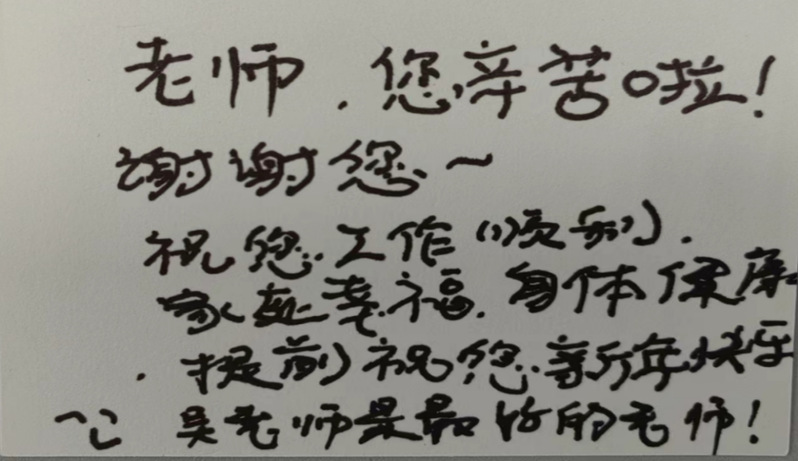 老师，您辛苦啦！
谢谢您～
祝您工作顺利，
家庭幸福，身体健康
，提前祝您新年快乐
吴老师是最好的老师！